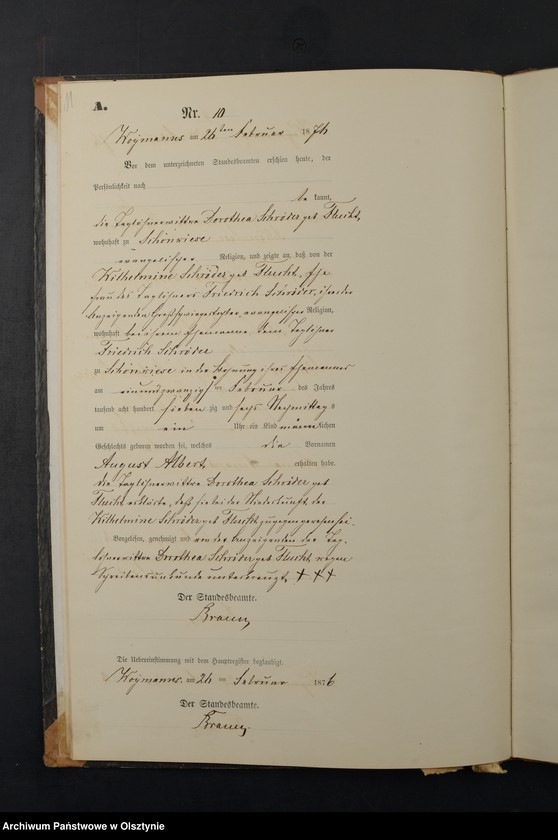 11
A.
Nr. 10
Koymanns am 26ten Februar 1876
Vor dem unterzeichneten Standesbeamten erschien heute, der
Persönlichkeit nach
be kannt,
die Taglöhnerwittwe Dorothea Schröder geb
wohnhaft zu Schönwiese
evangelischer Religion, und zeigte an, daß von der
Wilhelmine Schröder geb Ehe
frau des Taglöhners Friedrich Schröder,
Anzeigenden evangelischer Religion,
wohnhaft bei ihrem Ehemanne, dem Taglöhner
Friedrich Schröder
zu Schönwiese in der Wohnung ihres Ehemannes
am einundzwanzigsten Februar des Jahres
tausend acht hundert sieben zig und sechs Nachmittags
um ein Uhr ein Kind männlichen
Geschlechts geboren worden sei, welches die Vornamen
August Albert erhalten habe.
die Taglöhnerwittwe Dorothea Schröder geb
erklärte, daß sie bei der Niederkunft der
Wilhelmine Schröder geb zugegen gewesen sei.
Vorgelesen, genehmigt und von der Anzeigenden der Tag-
löhnerwittwe Dorothea Schröder geb wegen
Schreibensunkunde unterkreuzt + + +
Der Standesbeamte.
Die Uebereinstimmung mit dem Hauptregister beglaubigt.
Koymanns am 26 ten Februar 1876
Der Standesbeamte.
Archiwum Państwowe w Olsztynie